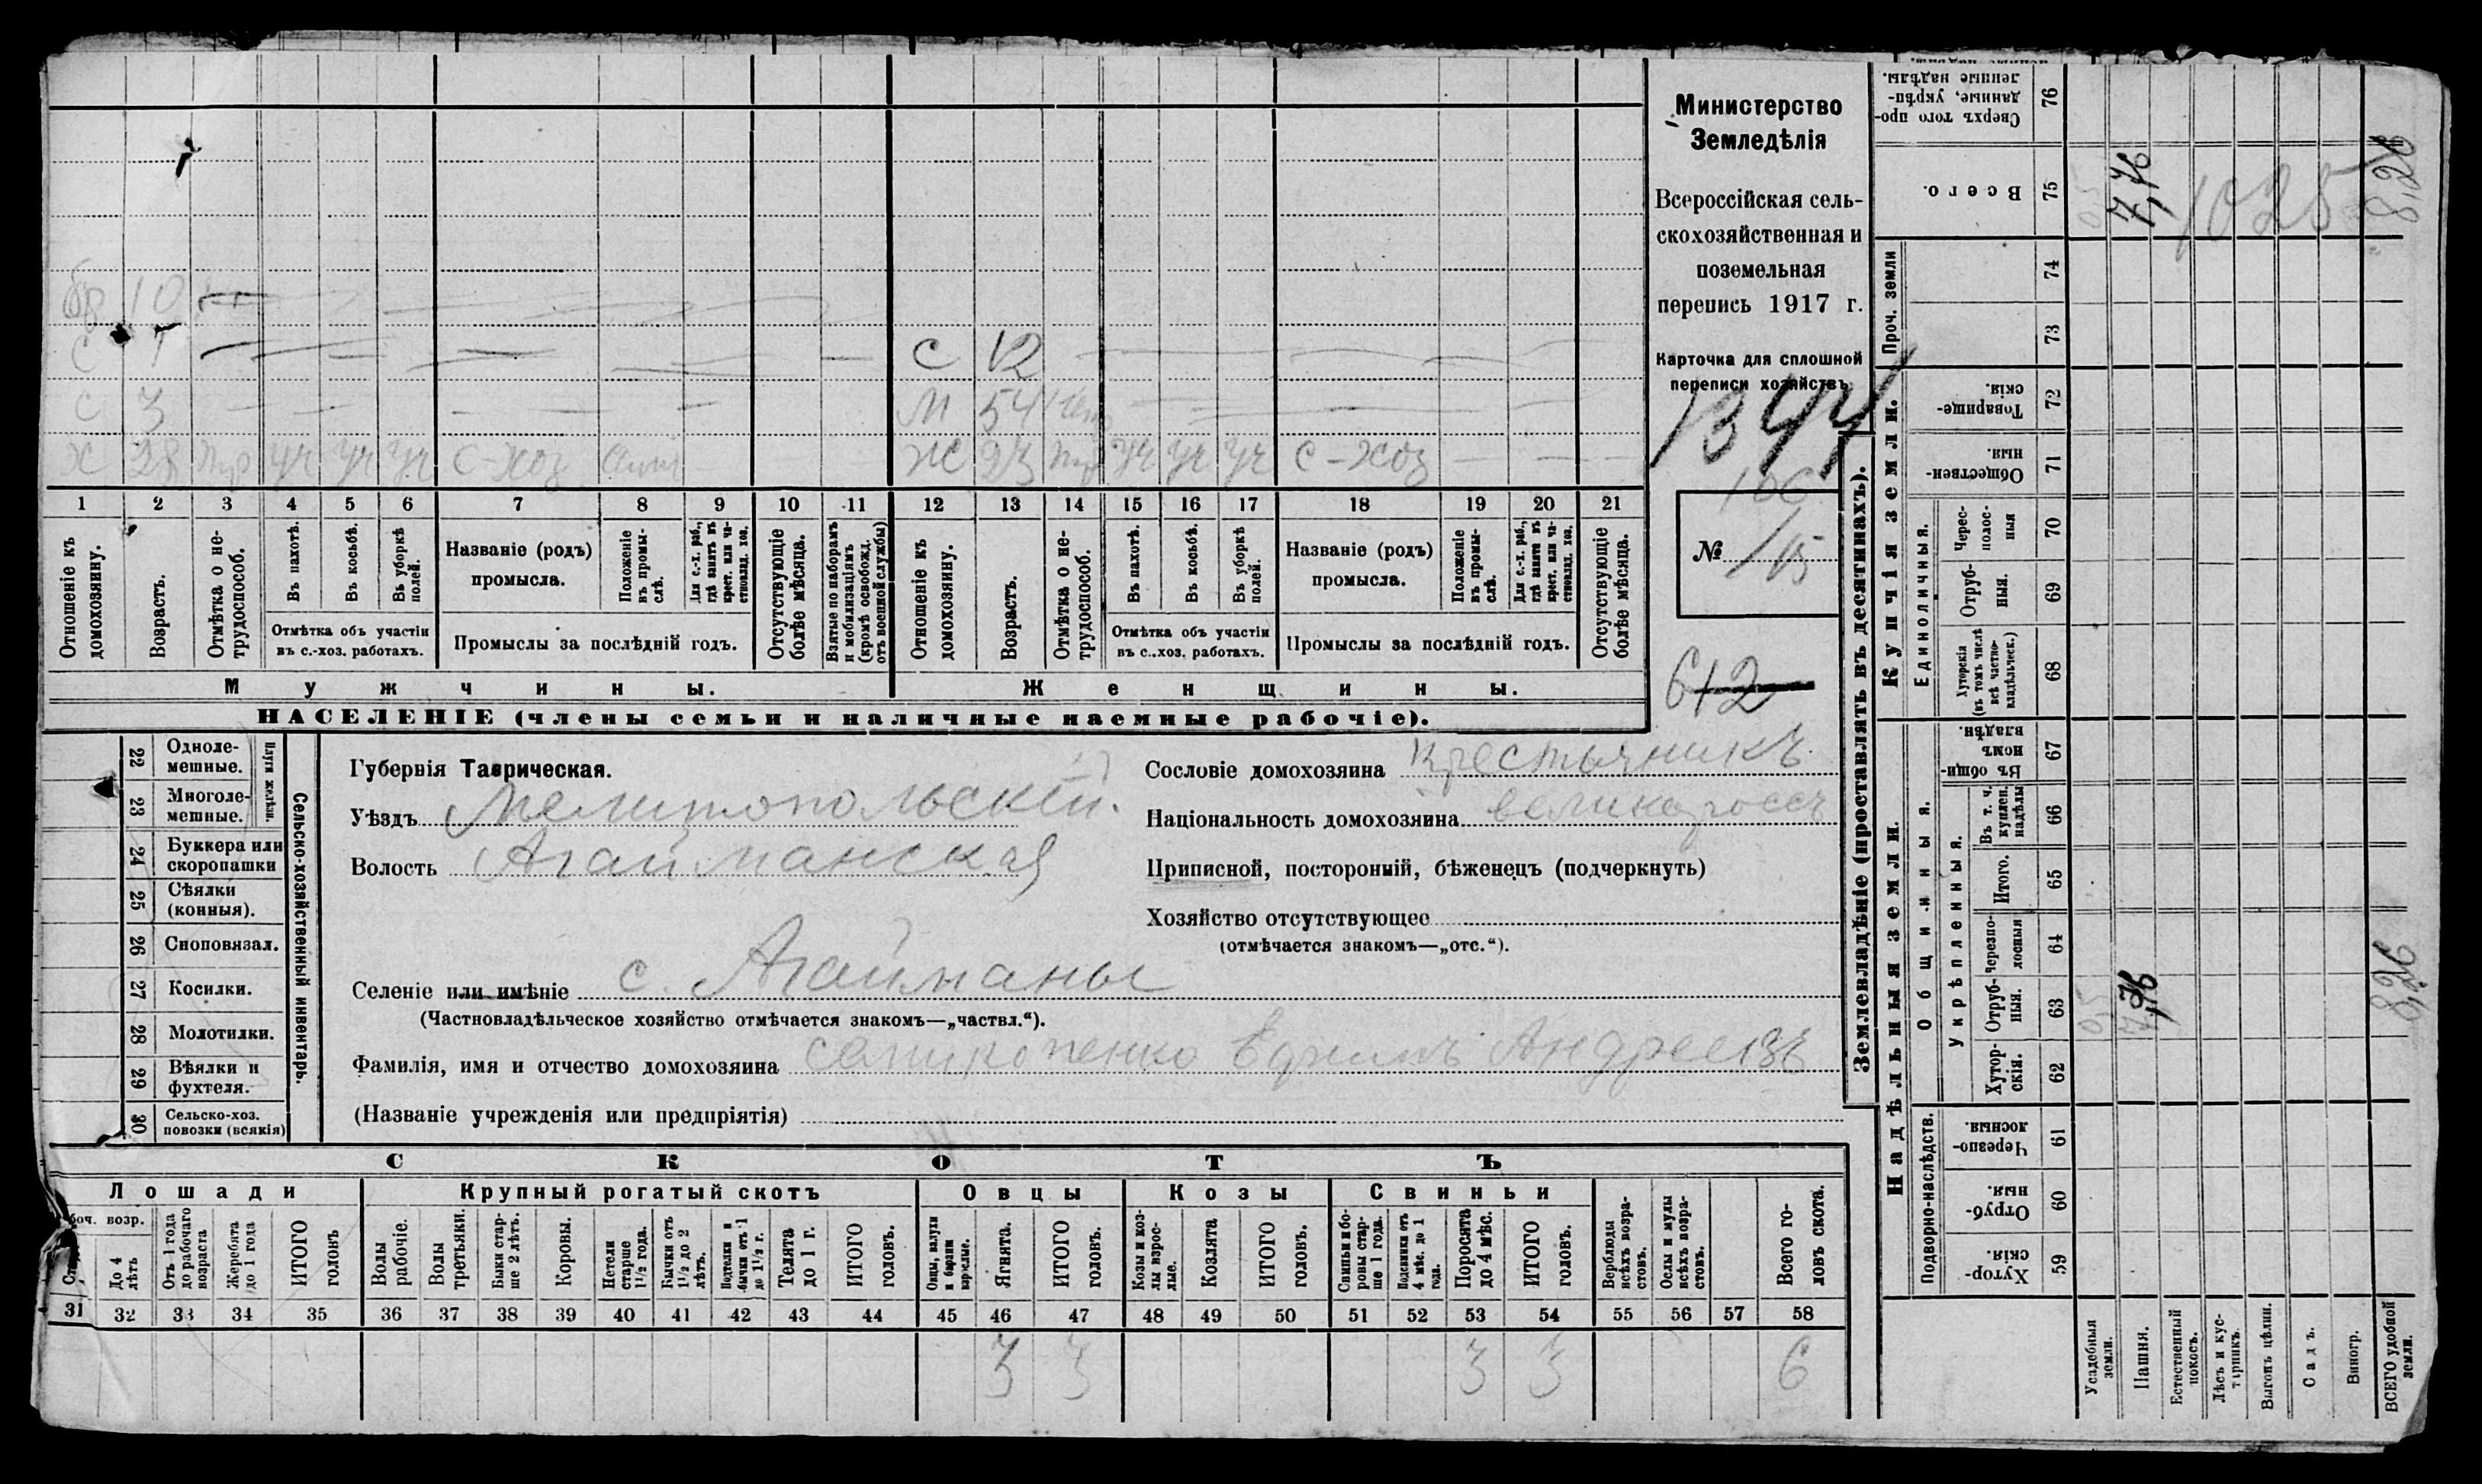 Министерство
Земледѣлія
Всероссійская сель-
скохозяйственная и
поземельная
перепись 1917 г.
Карточка для сплошной
переписи хозяйствъ
1344
106
№ 115
612
бр 10
С 7
С 12
С 3
М 54
Х 28 пр уч уч уч С-хоз
Ж 23 пр уч уч уч С-хоз
1 2 3 4 5 6 7 8 9 10 11 12 13 14 15 16 17 18 19 20 21
Отношеніе къ домохозяину.
Возрастъ.
Отмѣтка о не-трудоспособ.
Въ пахотѣ.
Въ косьбѣ.
Въ уборкѣ полей.
Отмѣтка объ участіи
въ с.-хоз. работахъ.
Названіе (родъ)
промысла.
Положеніе въ промы-слѣ.
Для с.-х. раб., гдѣ занятъ въ крест. или ча-стновлад. хоз.
Промыслы за послѣдній годъ.
Отсутствующіе болѣе мѣсяца.
Взятые по наборамъ и мобилизаціямъ (кромѣ освобожд. отъ военной службы)
Отношеніе къ домохозяину.
Возрастъ.
Отмѣтка о не-трудоспособ.
Въ пахотѣ.
Въ косьбѣ.
Въ уборкѣ полей.
Отмѣтка объ участіи
въ с.-хоз. работахъ.
Названіе (родъ)
промысла.
Положеніе въ промы-слѣ.
Для с.-х. раб., гдѣ занята въ крест. или ча-стновлад. хоз.
Промыслы за послѣдній годъ.
Отсутствующіе болѣе мѣсяца.
Мужчины.
Женщины.
НАСЕЛЕНІЕ (члены семьи и наличные наемные рабочіе).
22 Одноле-мешные.
23 Многоле-мешные.
Плуги желѣзн.
24 Буккера или скоропашки
25 Сѣялки (конныя).
26 Сноповязал.
27 Косилки.
28 Молотилки.
29 Вѣялки и фухтеля.
30 Сельско-хоз. повозки (всякія)
Сельско-хозяйственный инвентарь.
Губернія Таврическая.
Уѣздъ Мелитопольскій.
Волость Агайманская
Селеніе или имѣніе с. Агайманы
(Частновладѣльческое хозяйство отмѣчается знакомъ—„частвл.“).
Фамилія, имя и отчество домохозяина Семикопенко Ефимъ Андреевъ
(Названіе учрежденія или предпріятія)
Сословіе домохозяина крестьяникъ
Національность домохозяина великороссъ
Приписной, посторонній, бѣженецъ (подчеркнуть)
Хозяйство отсутствующее
(отмѣчается знакомъ—„отс.“).
СКОТЪ
Лошади
Крупный рогатый скотъ
Овцы
Козы
Свиньи
боч. возр.
До 4 лѣтъ
Отъ 1 года до рабочаго возраста
Жеребята до 1 года
ИТОГО головъ
Волы рабочіе.
Волы третьяки.
Быки стар-ше 2 лѣтъ.
Коровы.
Нетели старше 1½ года.
Бычки отъ 1½ до 2 лѣтъ.
Подтелки и бычки отъ 1 до 1½ г.
Телята до 1 г.
ИТОГО головъ.
Овцы, валухи и бараны взрослые.
Ягнята.
ИТОГО головъ.
Козы и коз-лы взрос-лые.
Козлята
ИТОГО головъ.
Свиньи и бо-ровы стар-ше 1 года.
Подсвинки отъ 4 мѣс. до 1 года.
Поросята до 4 мѣс.
ИТОГО головъ.
Верблюды всѣхъ возра-стовъ.
Ослы и мулы всѣхъ возра-стовъ.
Всего го-ловъ скота.
31 32 33 34 35 36 37 38 39 40 41 42 43 44 45 46 47 48 49 50 51 52 53 54 55 56 57 58
3 3 3 3 6
Землевладѣніе (проставлять въ десятинахъ).
Купчія земли.
Надѣльныя земли.
Сверхъ того про-данные, укрѣп-ленные надѣлы. 76
Всего. 75
Проч. земли
74
73
Товарище-скія. 72
Обществен-ныя. 71
Единоличныя.
Черес-полос-ныя 70
Отруб-ныя. 69
Хуторскія (въ томъ числѣ всѣ частно-владѣльческ.) 68
Общинныя.
Въ общин-номъ владѣн. 67
Укрѣпленныя.
Въ т. ч. куплен. надѣлы 66
Итого. 65
Черезпо-лосныя 64
Отруб-ныя. 63
Хутор-скія. 62
Подворно-наслѣдств.
Черезпо-лосныя. 61
Отруб-ныя. 60
Хутор-скія. 59
Усадебныя земли.
Пашня.
Естественный покосъ.
Лѣсъ и кус-тарникъ.
Выгонъ цѣлин.
Садъ.
Виногр.
ВСЕГО удобной земли.
7,76
1025
8,26
7,76
8,26